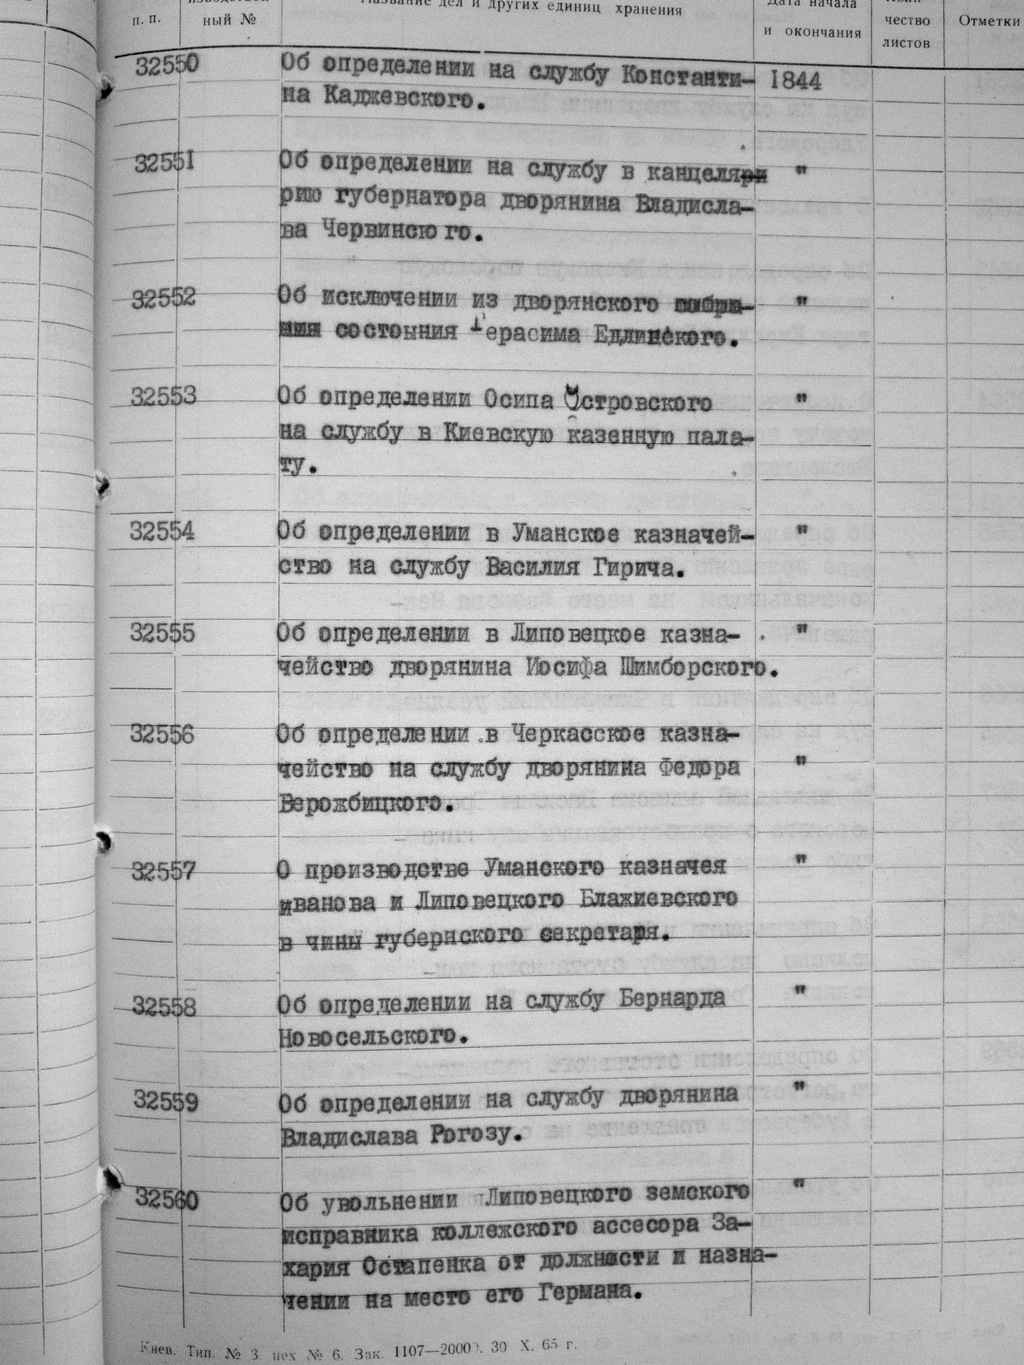 п. п.
ный №
Название дел и других единиц хранения
Дата начала
и окончания
чество
листов
Отметки
32550 Об определении на службу Константи- 1844
на Каджевского.
32551 Об определении на службу в канцеляри "
рию губернатора дворянина Владисла-
ва Червинсюго.
32552 Об исключении из дворянского "
состояния Герасима Едлинского.
32553 Об определении Осипа Островского "
на службу в Киевскую казенную пала-
ту.
32554 Об определении в Уманское казначей- "
ство на службу Василия Гирича.
32555 Об определении в Липовецкое казна- "
чейство дворянина Иосифа Шимборского.
32556 Об определении в Черкасское казна-
чейство на службу дворянина Федора "
Верожбицкого.
32557 О производстве Уманского казначея "
иванова и Липовецкого Блажиевского
в чины губернского секретаря.
32558 Об определении на службу Бернарда "
Новосельского.
32559 Об определении на службу дворянина "
Владислава Рогозу.
32560 Об увольнении Липовецкого земского "
исправника коллежского ассесора За-
хария Остапенка от должности и назна-
чении на место его Германа.
Киев. Тип. № 3. цех № 6. Зак. 1107—20000. 30 X. 65 г.